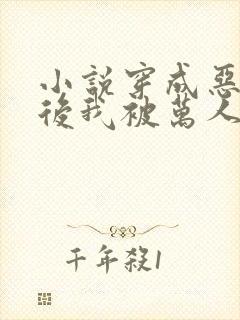 小說穿成惡
後我被萬人
千年殺1